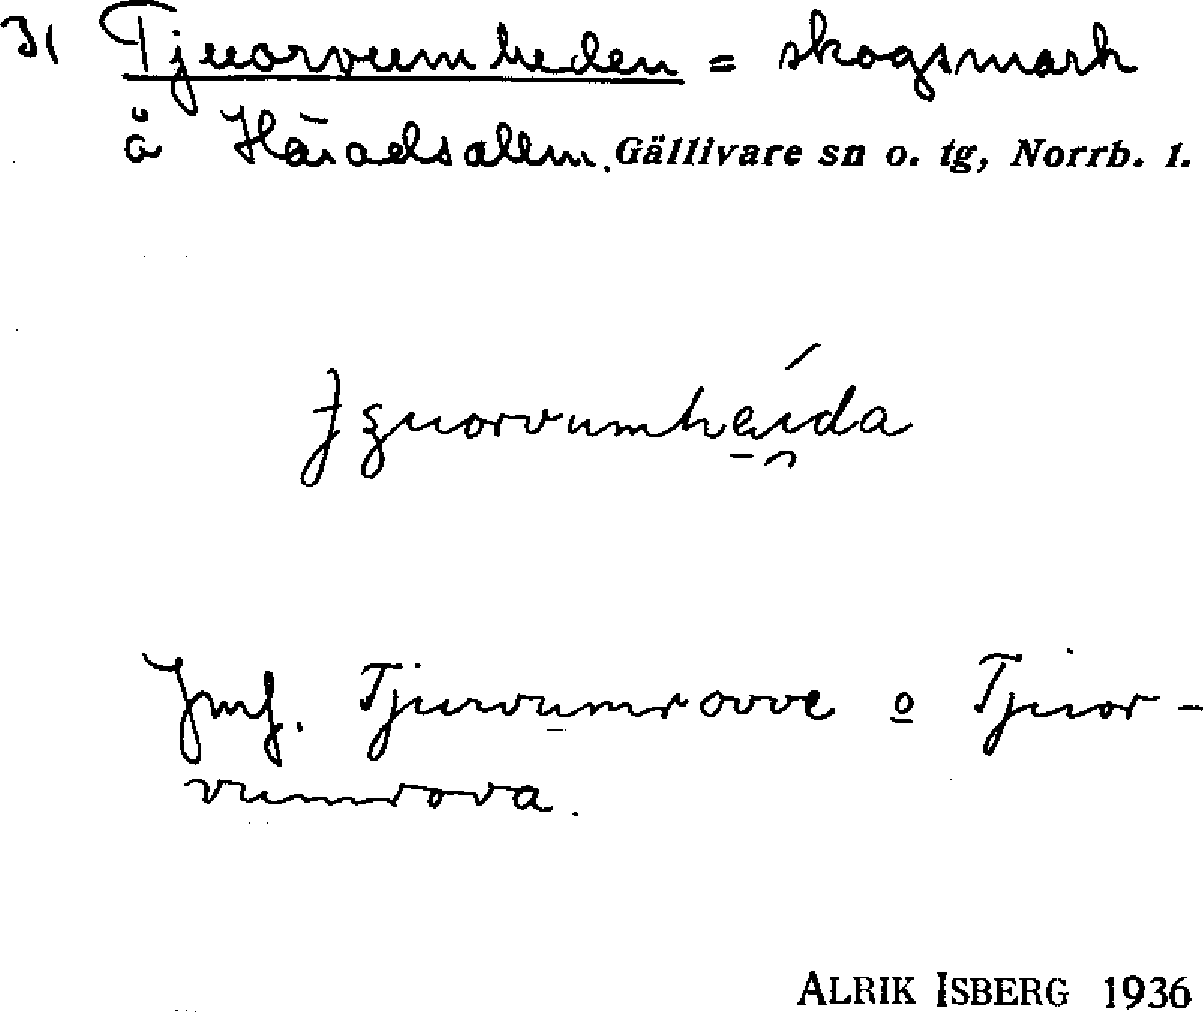 31 Tjuorvumheden = skogsmark
å Häradsallm. Gällivare sn o. tg, Norrb. l.
Jmf. Tjurvumrovve o Tjuor-
vumrova.
ALRIK ISBERG 1936